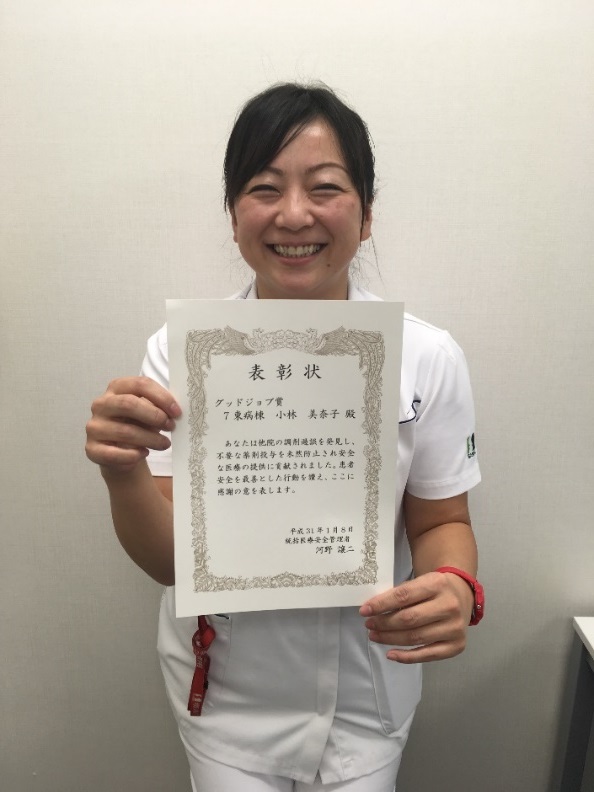 表彰状
グッドジョブ賞
7東病棟 小林 美奈子 殿
あなたは他院の調剤過誤を発見し、
不要な薬剤投与を未然防止され安全
な医療の提供に貢献されました。患者
安全を最善とした行動を讃え、ここに
感謝の意を表します。
平成31年1月8日
統括医療安全管理者
河野 譲二